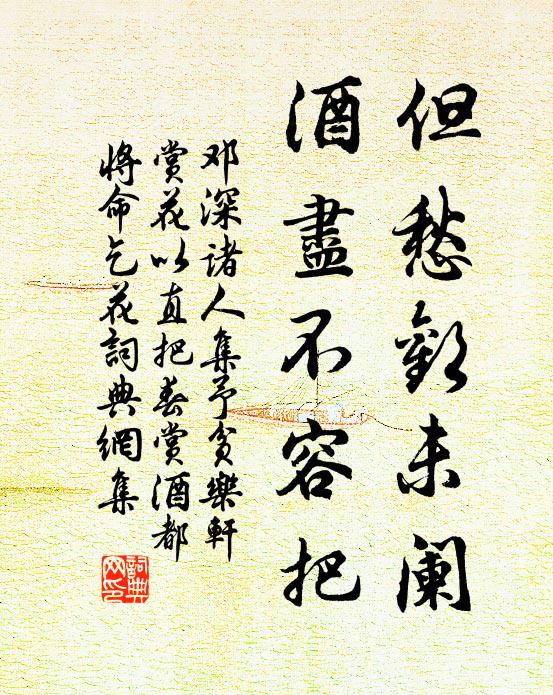 但愁歡未阑
酒盡不容把
邓深诸人集予贫樂軒
赏花以直把春赏酒都
将命乞花詞典網集
詞典網印